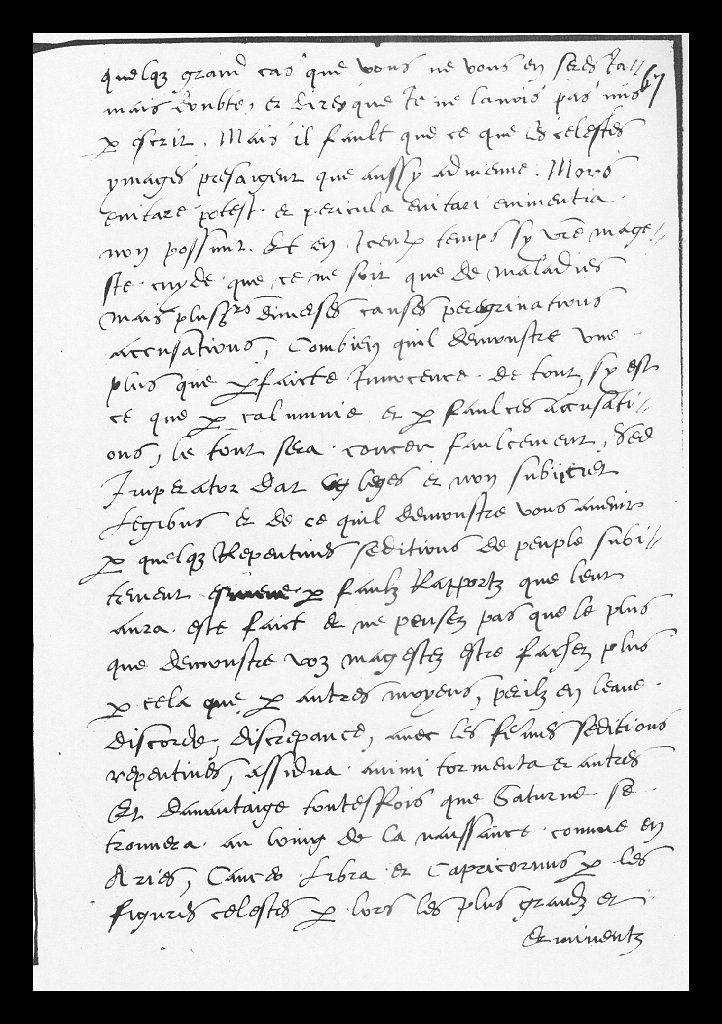 quelq3 grand cas que vous ne vous en serés Ja=
67
mais doubte, et dires que Je ne lavois pas mis
p escrit. Mais il fault que ce que les celestes
ymages presaigent que aussy advienne. Mors
evitare potest. et pericula evitari eminentia.
non possunt. Et en Iceulx temps sy vre mage=
ste. cuyde. que ce ne soit que de maladies
mais plusrs diverses causes peregrinations
accusations, Combien quil demonstre une
plus que pfaicte Innocence. de tout, sy est
ce que p calumnie et p faulces accusati=
ons, le tout sera. faulcement, Sed
Imperator dat leges et non subiicitur
Legibus et de ce quil demonstre vous avenir
p quelq3 Repentines seditions de peuple subi=
tement p faulz Rapportz que leur
aura. este faict et ne pensez pas que le plus
que demonstre voz magestez estre fachez plus
p cela que p autres moyens, perilz en leaue.
discorde, discrepance, avec les femes seditions
repentines, assidua. animi tormenta et autres
Et davantaige toutesfois que Saturne se
trouvera. au loing de la naissance. comme en
Aries, Cancer Libra et Capricornus p les
figures celestes p lors les plus grandz et
eminentz